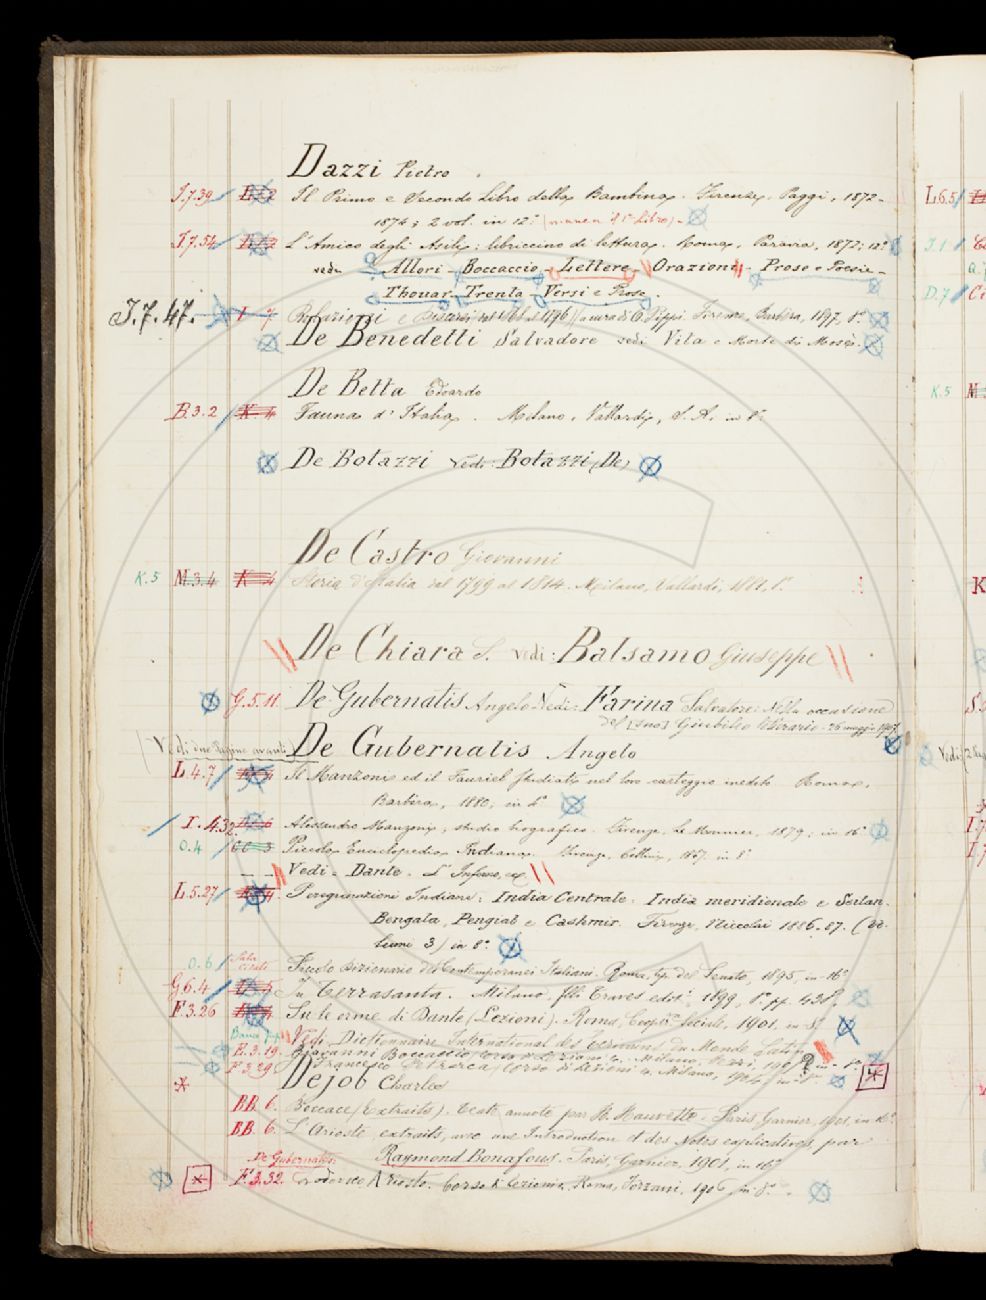 Dazzi Pietro
I.7.39 Il Primo e Secondo Libro della Bambina. Firenze, Paggi, 1872-
1874; 2 vol. in 12°. (manca il 1° libro)-
I.7.54 L'Amico degli Asili: libriccino di lettura. Roma, Paravia, 1872; in 12°
vedi Allori - Boccaccio - Lettere - Orazioni - Prose e Poesie -
Thouar - Trenta Versi e Prose.
I.7.47. I 7 a cura di G. Pippi Firenze, Barbèra, 1897, 8°.
De Benedetti Salvadore vedi Vita e Morte di Mosè.
De Betta Edoardo
B.3.2 K 4 Fauna d'Italia. Milano, Vallardi, S. A. in 8°.
De Botazzi Vedi: Botazzi (De)
De Castro Giovanni
K.5 M.3.4 K 4 Storia d'Italia dal 1799 al 1814. Milano, Vallardi, 1881, 8°.
De Chiara S. vedi: Balsamo Giuseppe
G.5.11. De Gubernatis Angelo Vedi: Farina Salvatore: Nella occasione
del [suo] Giubileo letterario - 26 maggio 1907.
(Vedi due pagine avanti) De Gubernatis Angelo
L.4.7 Il Manzoni ed il Fauriel studiati nel loro carteggio inedito Roma,
Barbèra, 1880, in 8°
I.4.32. Alessandro Manzoni, studio biografico. Firenze, Le Monnier, 1879; in 16°
O.4 CC 3 Piccola Enciclopedia Indiana. Firenze, 1867. in 8°
Vedi - Dante. L'Inferno, ec.
L.5.27 Peregrinazioni Indiane: India Centrale: India meridionale e Seilan.
Bengala, Pengiab e Cashmir. Firenze, Niccolai 1886-87. (Vo-
lumi 3) in 8°.
O.6 Sala Piccolo Dizionario dei Contemporanei Italiani. Roma, tip. del Senato, 1895, in 16°
G.6.4 In Terrasanta. Milano, flli Treves edit.i 1899, 8°. pp. 430.
F.3.26 Su le orme di Dante (Lezioni). Roma, Coop.va Sociale, 1901. in 8°.
Vedi Dictionnaire International des écrivains du Monde Latin
F.3.19. Giovanni Boccaccio Corso di Lezioni Milano, in 8°
F.3.29 Francesco Petrarca / Corso di Lezioni Milano, in 8°
* Dejob Charles *
BB. 6. Boccace (Extraits). Texte annoté par H. Hauvette - Paris, Garnier, 1901, in 16°.
BB. 6. L'Arioste, extraits, avec une Introduction et des Notes explicatives par
De Gubernatis: Raymond Bonafous. Paris, Garnier, 1901, in 16°
* F.3.32. Lodovico Ariosto. Corso di Lezioni. Roma, Forzani, 1906 in 8°.
L.6.5
I.1
D.7
K.5 M
K
Vedi